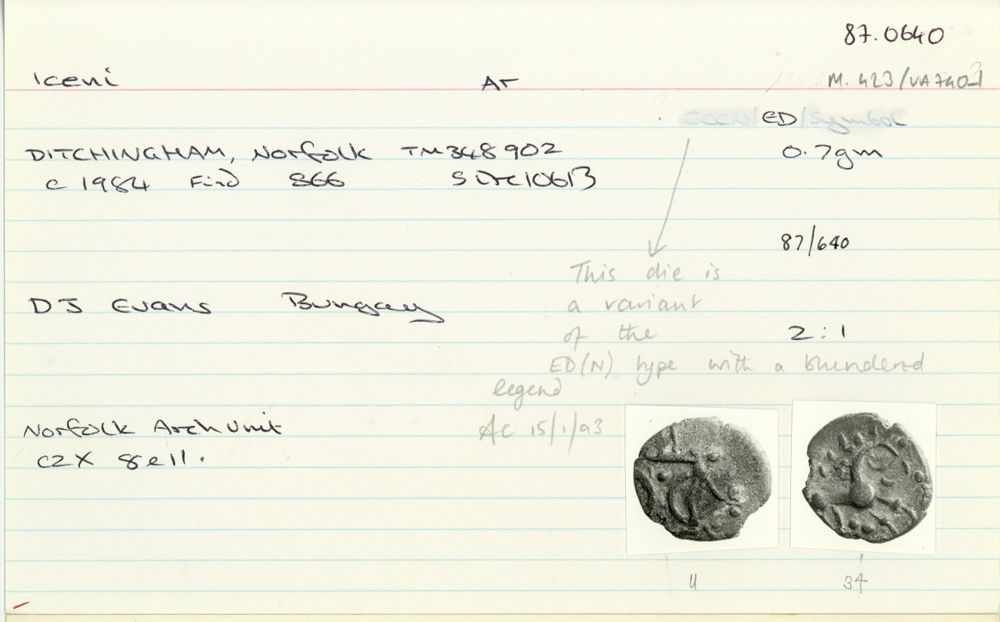 87.0640
Iceni AR M. 423/VA 740-1
? ECEN/ED/Symbol
DITCHINGHAM, Norfolk TM348902 0.7gm
c 1984 Find 866 Site 10613
87/640
This die is
a variant
DJ Evans Bungay
of the 2:1
ED(N) type with a blundered
legend
Norfolk Arch Unit AC 15/1/93
C2X 8ell.
34